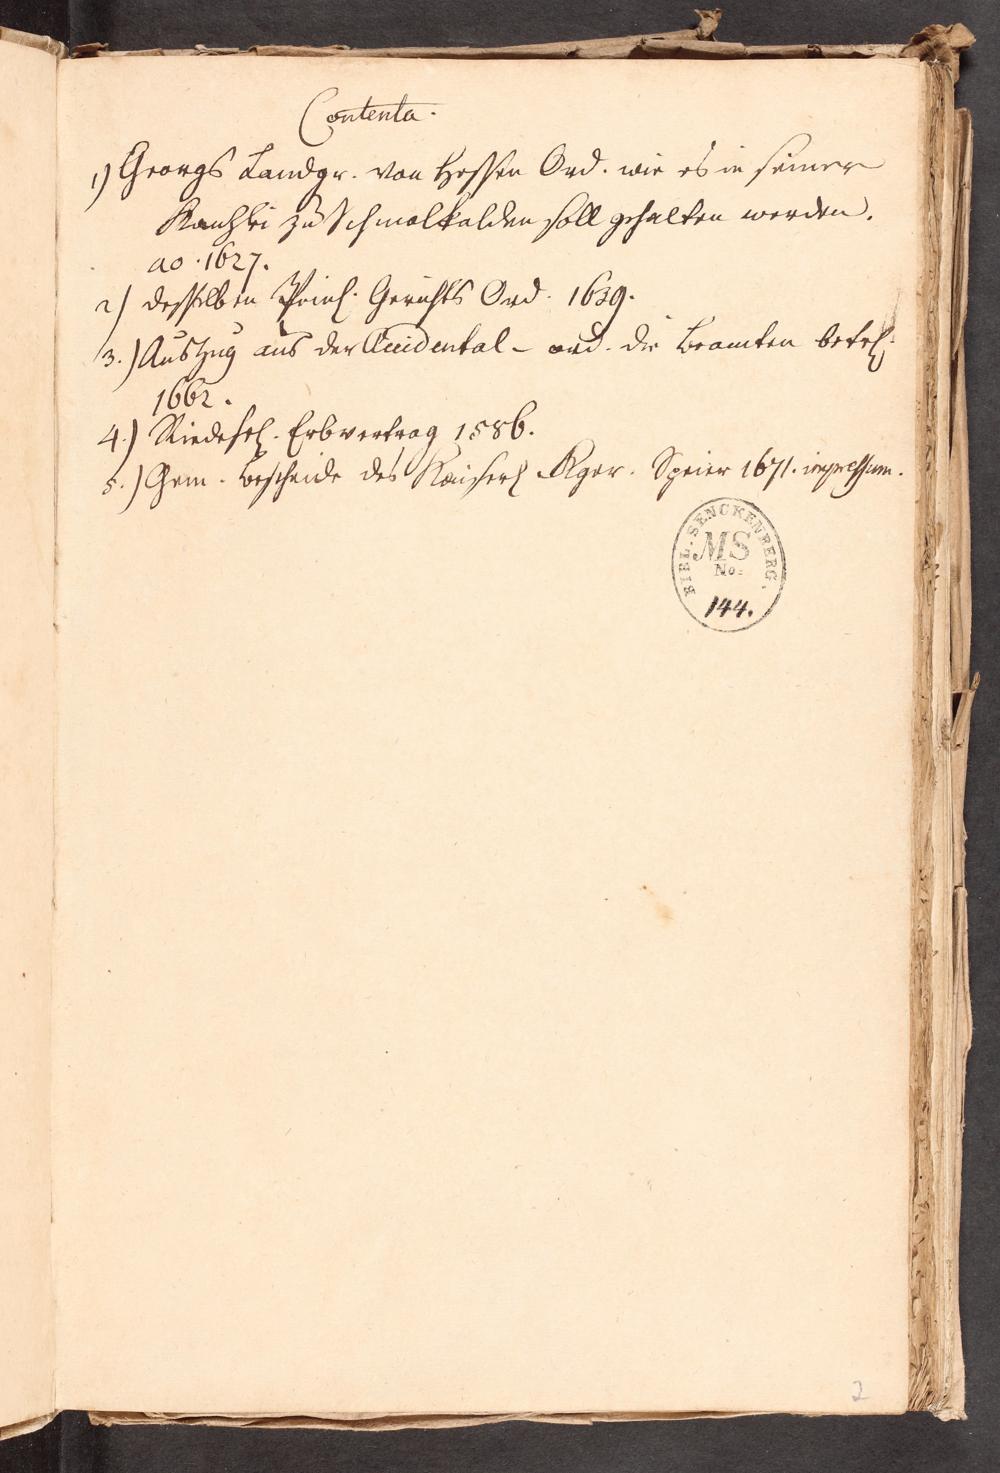 Contenta.
1) Georgs Landgr. von Hessen Ord. wie es in seiner
Kanzlei zu Schmalkalden soll gehalten werden.
ao. 1627.
2) desselben Peinl. Gerichts Ord. 1639.
3.) Auszug aus der Accidental- ord. die Beamten betref:
1662.
4.) Riedesel. Erbvertrag 1586.
5.) Gem. Bescheide des Kaiserl KGer. Speier 1671. impressum.
BIBL. SENCKENBERG.
MS
No:
144.
2